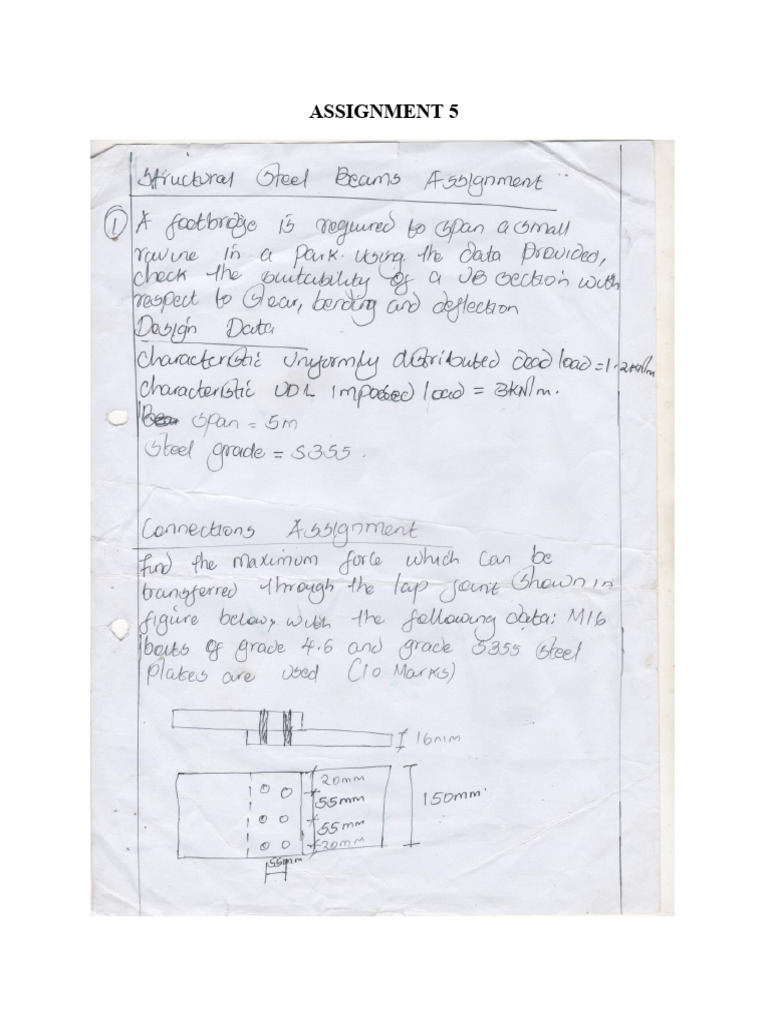 ASSIGNMENT 5
Structural Steel Beams Assignment
① A footbridge is required to span a small
ravine in a park. Using the data provided,
check the suitability of a UB section with
respect to shear, bending and deflection
Design Data
Characteristic Uniformly distributed dead load = 1.2kN/m
Characteristic UDL imposed load = 3kN/m.
span = 5m
Steel grade = S355.
Connections Assignment
Find the maximum force which can be
transferred through the lap joint shown in
figure below, with the following data: M16
bolts of grade 4.6 and grade S355 steel
plates are used (10 Marks)
16mm
20mm
55mm
150mm.
55mm
20mm
55mm